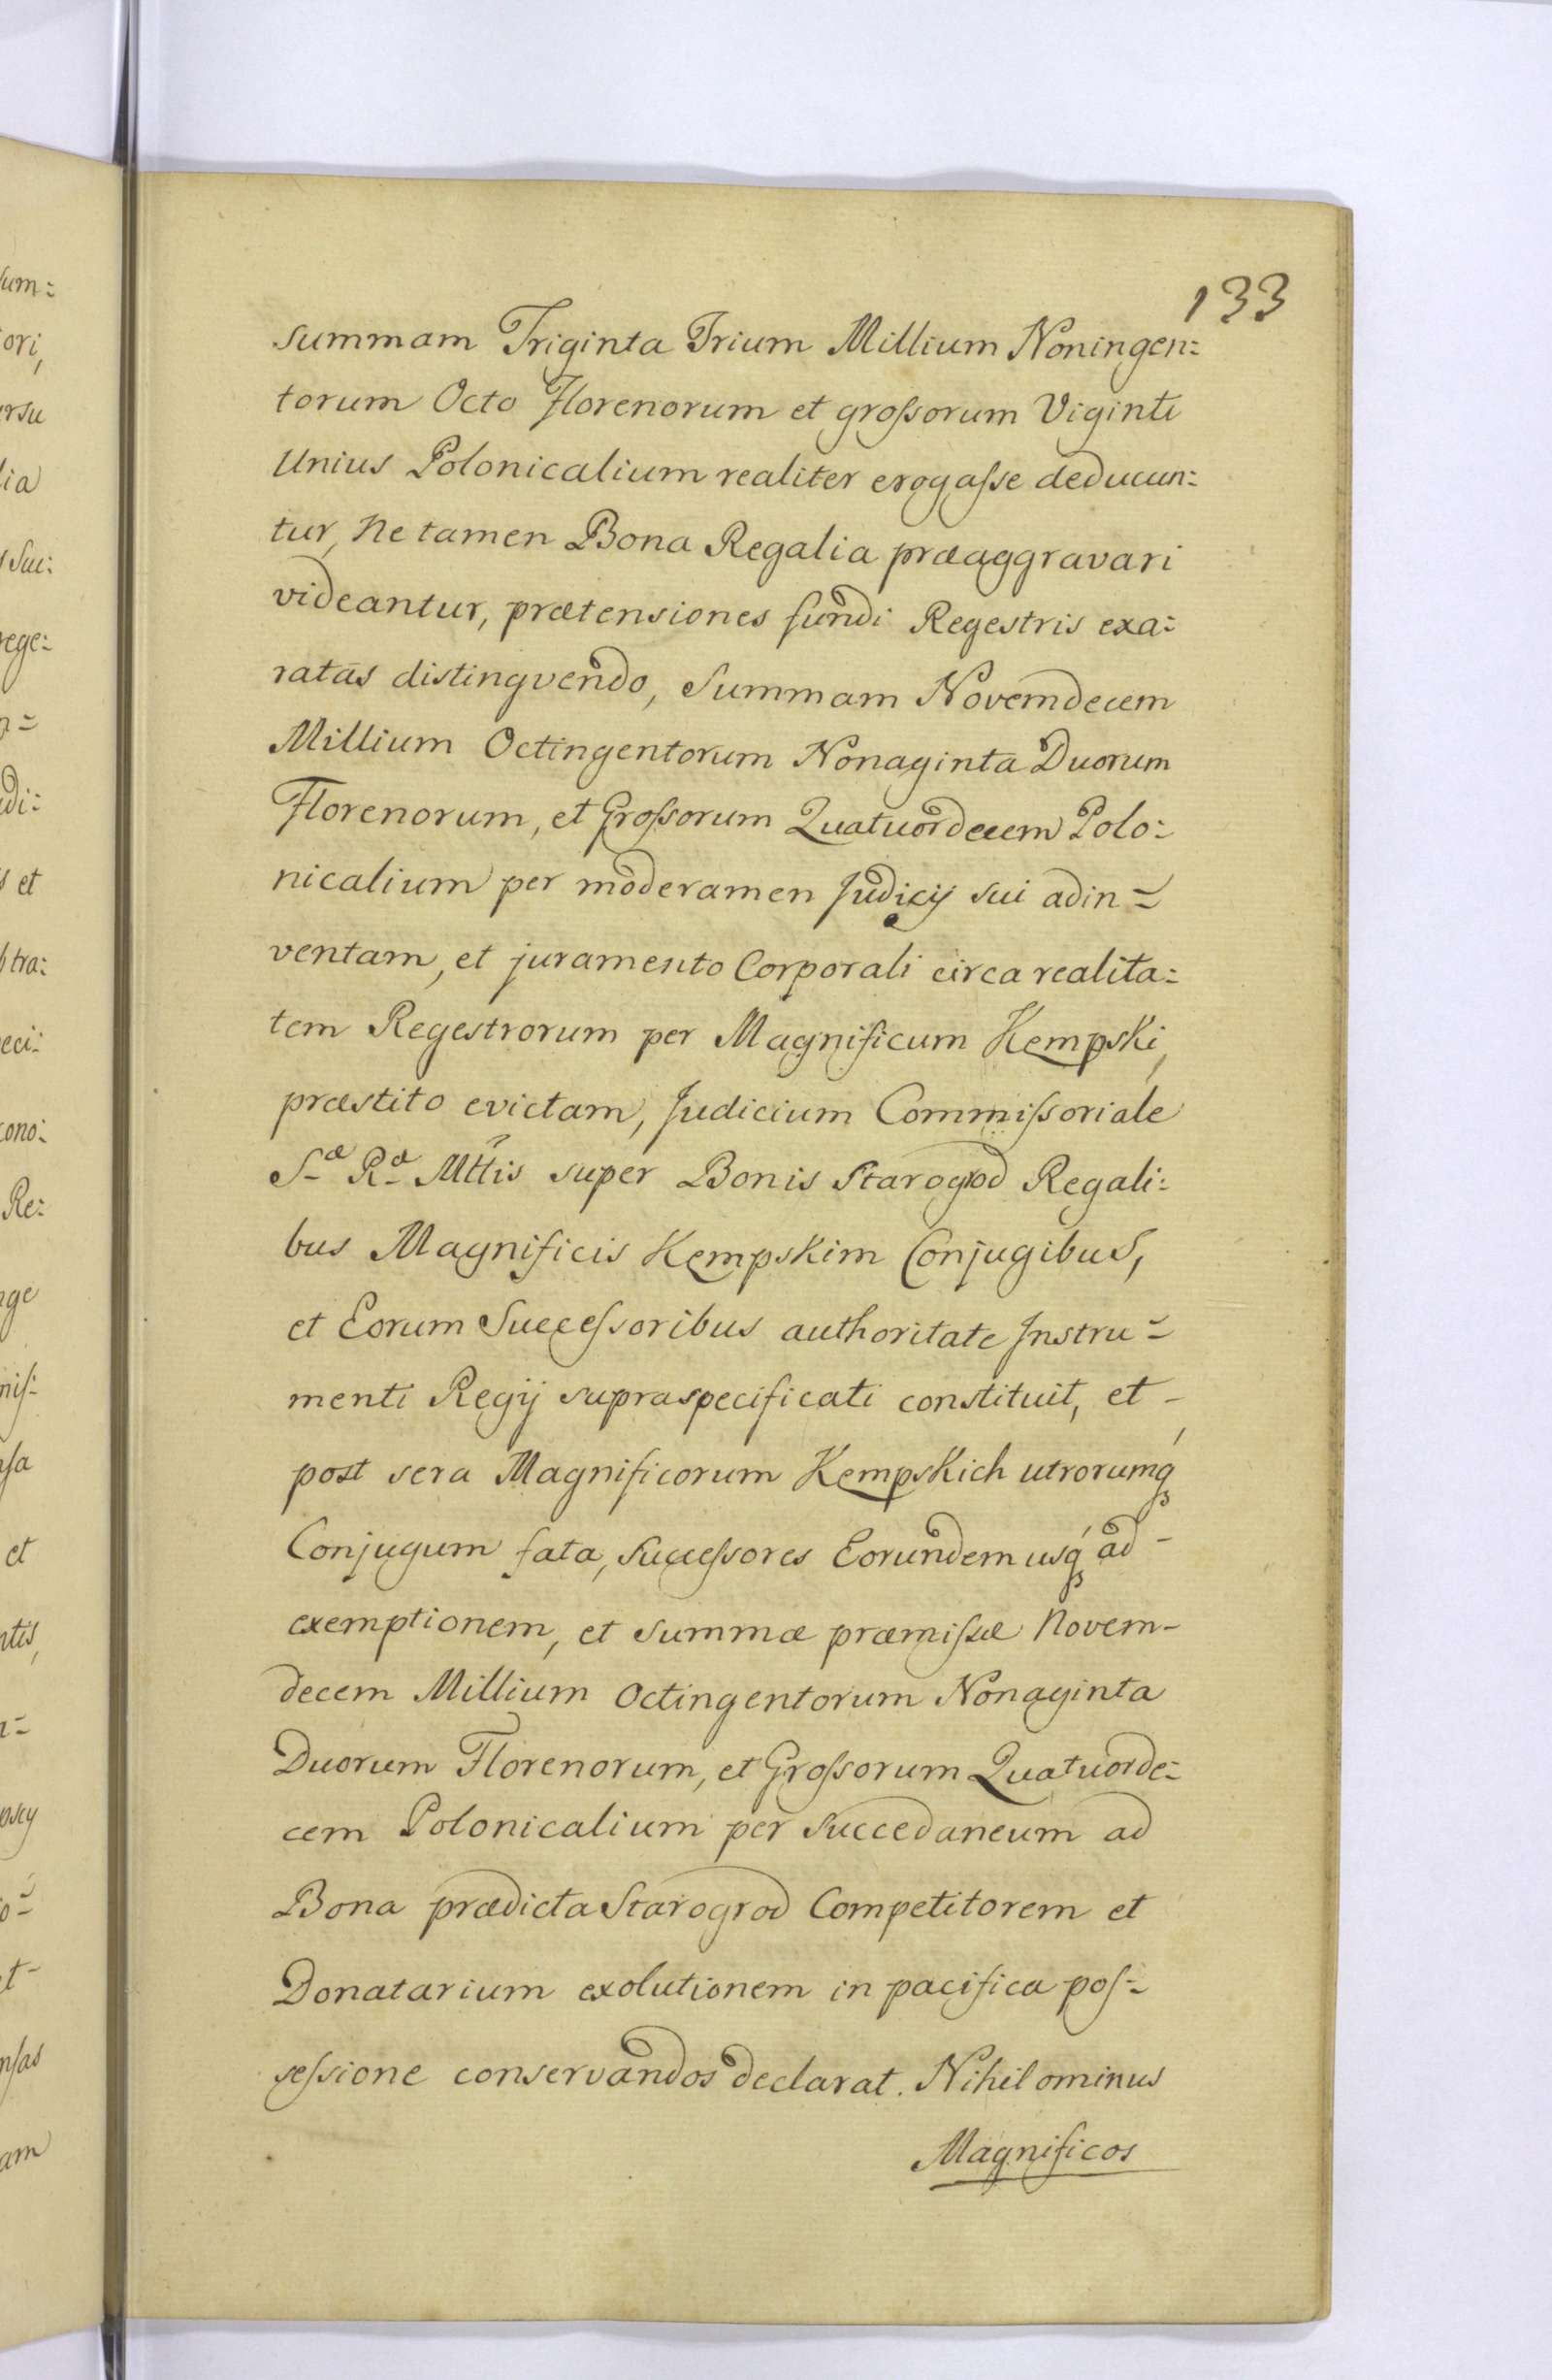 133
summam Triginta Trium Millium Noningen:
torum Octo Florenorum et großorum Viginti
Unius Polonicalium realiter erogaſse deducun:
tur, ne tamen Bona Regalia præaggravari
videantur, prætensiones fundi Regestris exa:
ratas distingvendo, Summam Novemdecem
Millium Octingentorum Nonaginta Duorum
Florenorum, et Großorum Quatuordecem Polo:
nicalium per moderamen Judicij sui adin=
ventam, et juramento Corporali circa realita:
tem Regestrorum per Magnificum Kempski,
præstito evictam, Judicium Commiſsoriale
Sæ Ræ Mttis super Bonis Starogrod Regali:
bus Magnificis Kempskim Conjugibus,
et Eorum Succeſsoribus authoritate Instru=
menti Regij supraspecificati constituit, et -
post sera Magnificorum Kempskich utrorumq́
Conjugum fata, Succeſsores Eorundem usq́ ad -
exemptionem, et summæ præmiſsæ Novem-
decem Millium Octingentorum Nonaginta
Duorum Florenorum, et Großorum Quatuorde:
cem Polonicalium per Succedaneum ad
Bona prædicta Starogrod Competitorem et
Donatarium exolutionem in pacifica poſ=
seſsione conservandos declarat. Nihilominus
Magnificos
sum:
ori,
ersu
lia
Suc:
rege:
n=
di:
s et
tra:
eci:
cono:
Re:
nge
miſ:
et
ntis,
t-
nſas
am